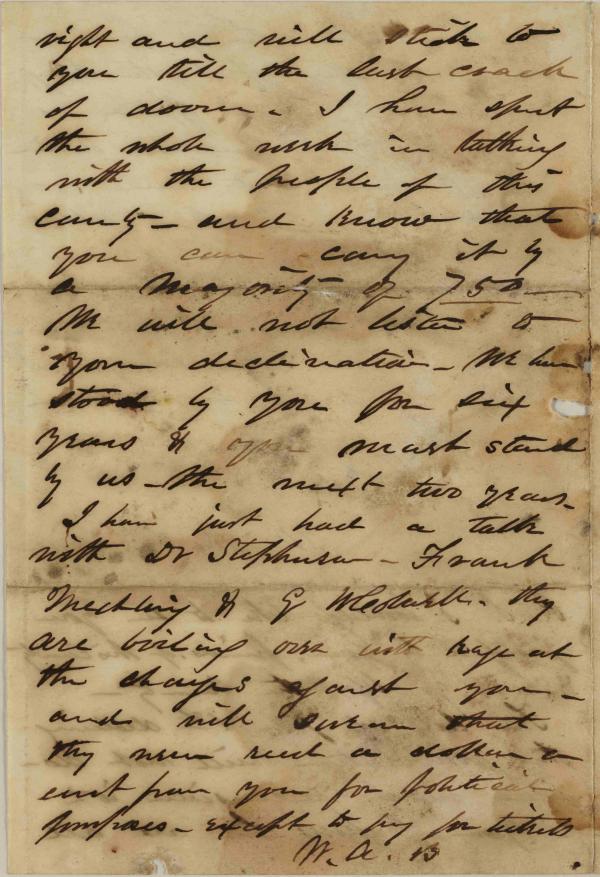 right and will stick to
you till the last crack
of doom - I have spent
the whole week in talking
with the people of this
county - and know that
you can carry it by
a majority of 750 -
We will not listen to
your declination - We have
stood by you for six
years & you must stand
by us - the next two years.
I have just had a talk
with Dr Stephenson - Frank
Mechling & G - they
are boiling over with rage at
the charges against you -
and will swear that
they never recd a dollar or
cent from you for political
purposes - except to pay for tickets
W. A. B